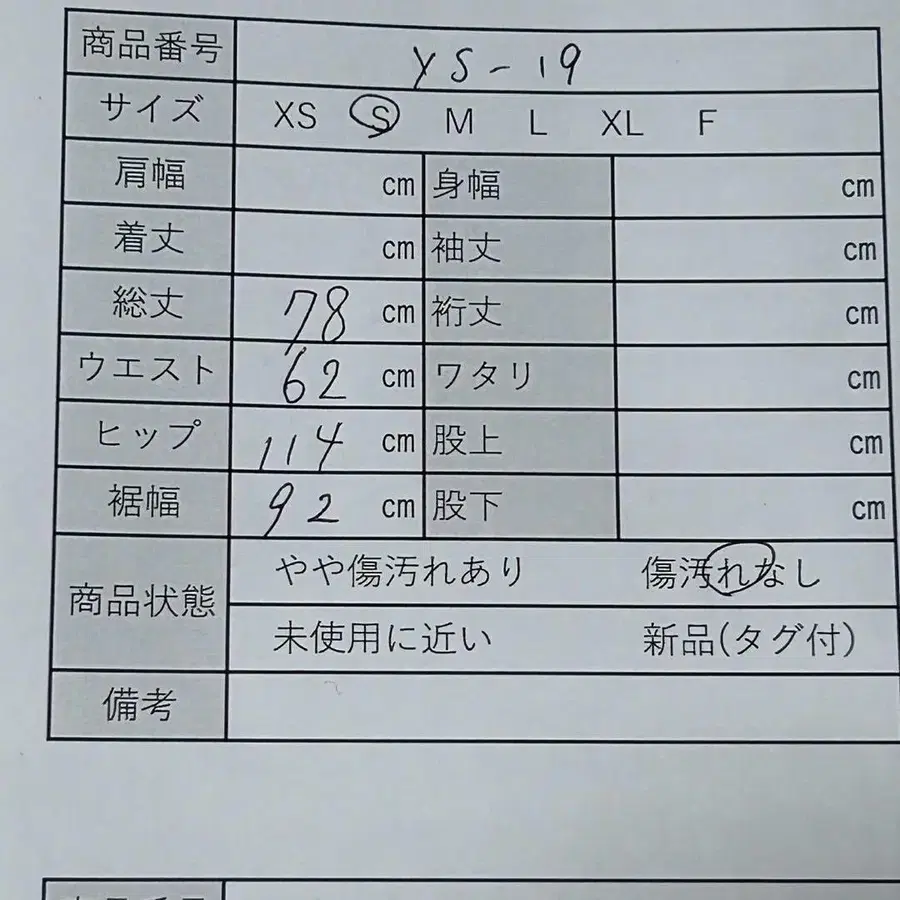 商品番号 YS-19
サイズ XS S M L XL F
肩幅 cm 身幅 cm
着丈 cm 袖丈 cm
総丈 78 cm 裄丈 cm
ウエスト 62 cm ワタリ cm
ヒップ 114 cm 股上 cm
裾幅 92 cm 股下 cm
商品状態 やや傷汚れあり 傷汚れなし
未使用に近い 新品(タグ付)
備考